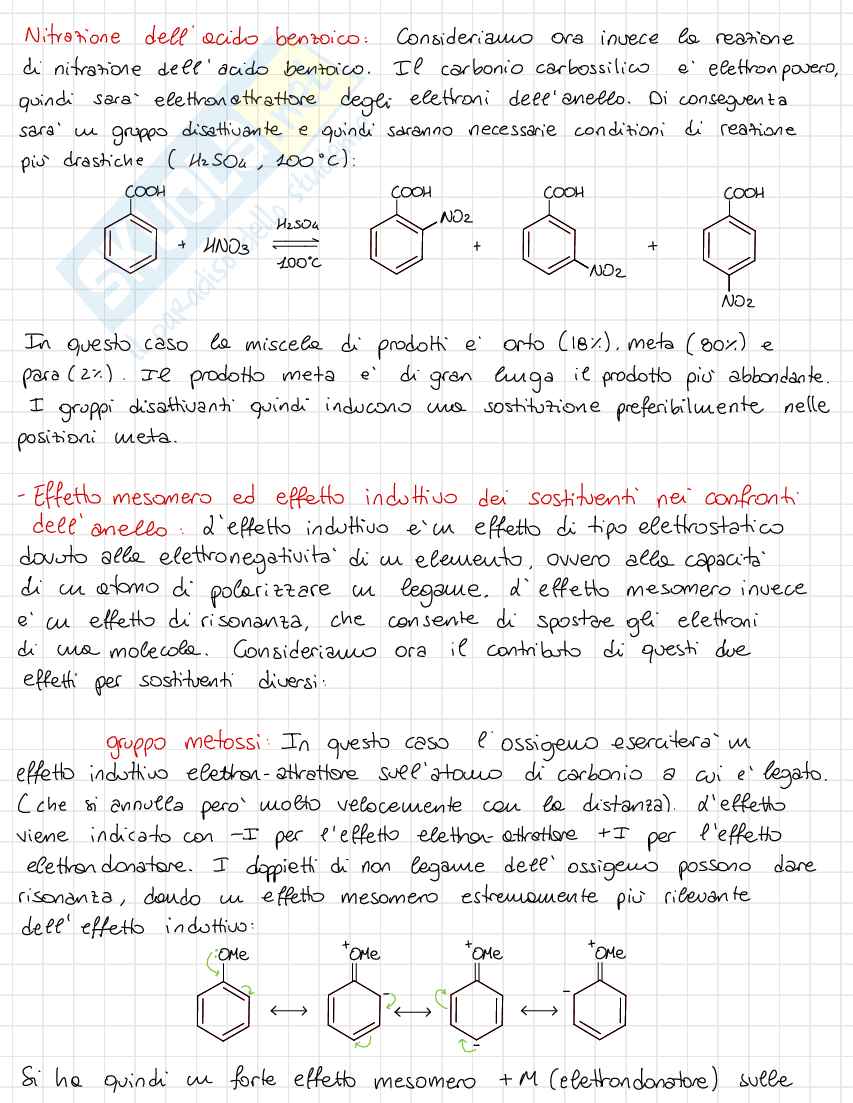 Nitrazione dell'acido benzoico: Consideriamo ora invece la reazione
di nitrazione dell'acido benzoico. Il carbonio carbossilico e' elettron povero,
quindi sara' elettronattrattore degli elettroni dell'anello. Di conseguenza
sara' un gruppo disattivante e quindi saranno necessarie condizioni di reazione
più drastiche (H2SO4, 100°C):
COOH COOH COOH COOH
+ HNO3 H2SO4 100°C NO2 + NO2 + NO2
In questo caso la miscela di prodotti e' orto (18%), meta (80%) e
para (2%). Il prodotto meta e' di gran lunga il prodotto più abbondante.
I gruppi disattivanti quindi inducono una sostituzione preferibilmente nelle
posizioni meta.
- Effetto mesomero ed effetto induttivo dei sostituenti nei confronti
dell'anello: L'effetto induttivo e' un effetto di tipo elettrostatico
dovuto alla elettronegativita' di un elemento, ovvero alla capacita'
di un atomo di polarizzare un legame. L'effetto mesomero invece
e' un effetto di risonanza, che consente di spostare gli elettroni
di una molecola. Consideriamo ora il contributo di questi due
effetti per sostituenti diversi:
gruppo metossi: In questo caso l'ossigeno esercitera' un
effetto induttivo elettron-attrattore sull'atomo di carbonio a cui e' legato.
(che si annulla pero' molto velocemente con la distanza). L'effetto
viene indicato con -I per l'effetto elettron-attrattore +I per l'effetto
elettrondonatore. I doppietti di non legame dell'ossigeno possono dare
risonanza, dando un effetto mesomero estremamente più rilevante
dell'effetto induttivo:
:OMe +OMe +OMe +OMe
- - -
Si ha quindi un forte effetto mesomero +M (elettrondonatore) sulle
SKUOLA.net
il paradiso dello studente